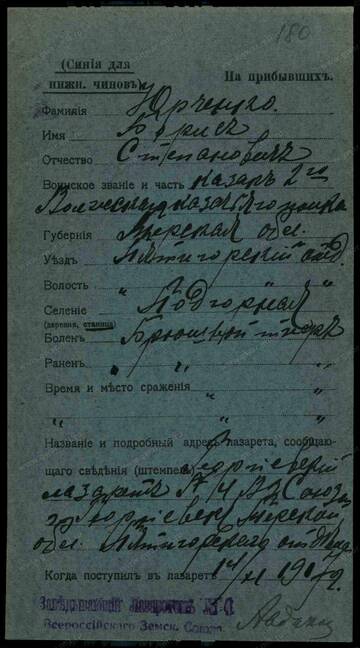 180
(Синія для
нижн. чиновъ)
На прибывшихъ.
Фамилія Юрченко.
Имя Борисъ
Отчество Степановичъ
Воинское званіе и часть казакъ 2го
Волжскаго казачьяго полка
Губернія Терская обл.
Уѣздъ Пятигорскій отд.
Волость " " "
Селеніе Подгорная
(деревня, станица)
Боленъ Брюшной тифъ
Раненъ " " "
Время и мѣсто сраженія " "
" " "
Названіе и подробный адресъ лазарета, сообщаю-
щаго свѣдѣнія (штемпель) Георгіевскій
лазаретъ № 4 Союза
г. Георгіевскъ Терской
обл. Пятигорскаго отдѣла
Когда поступилъ въ лазаретъ 191
Завѣдывающій Лазаретомъ №
Всероссійскаго Земск. Союза.